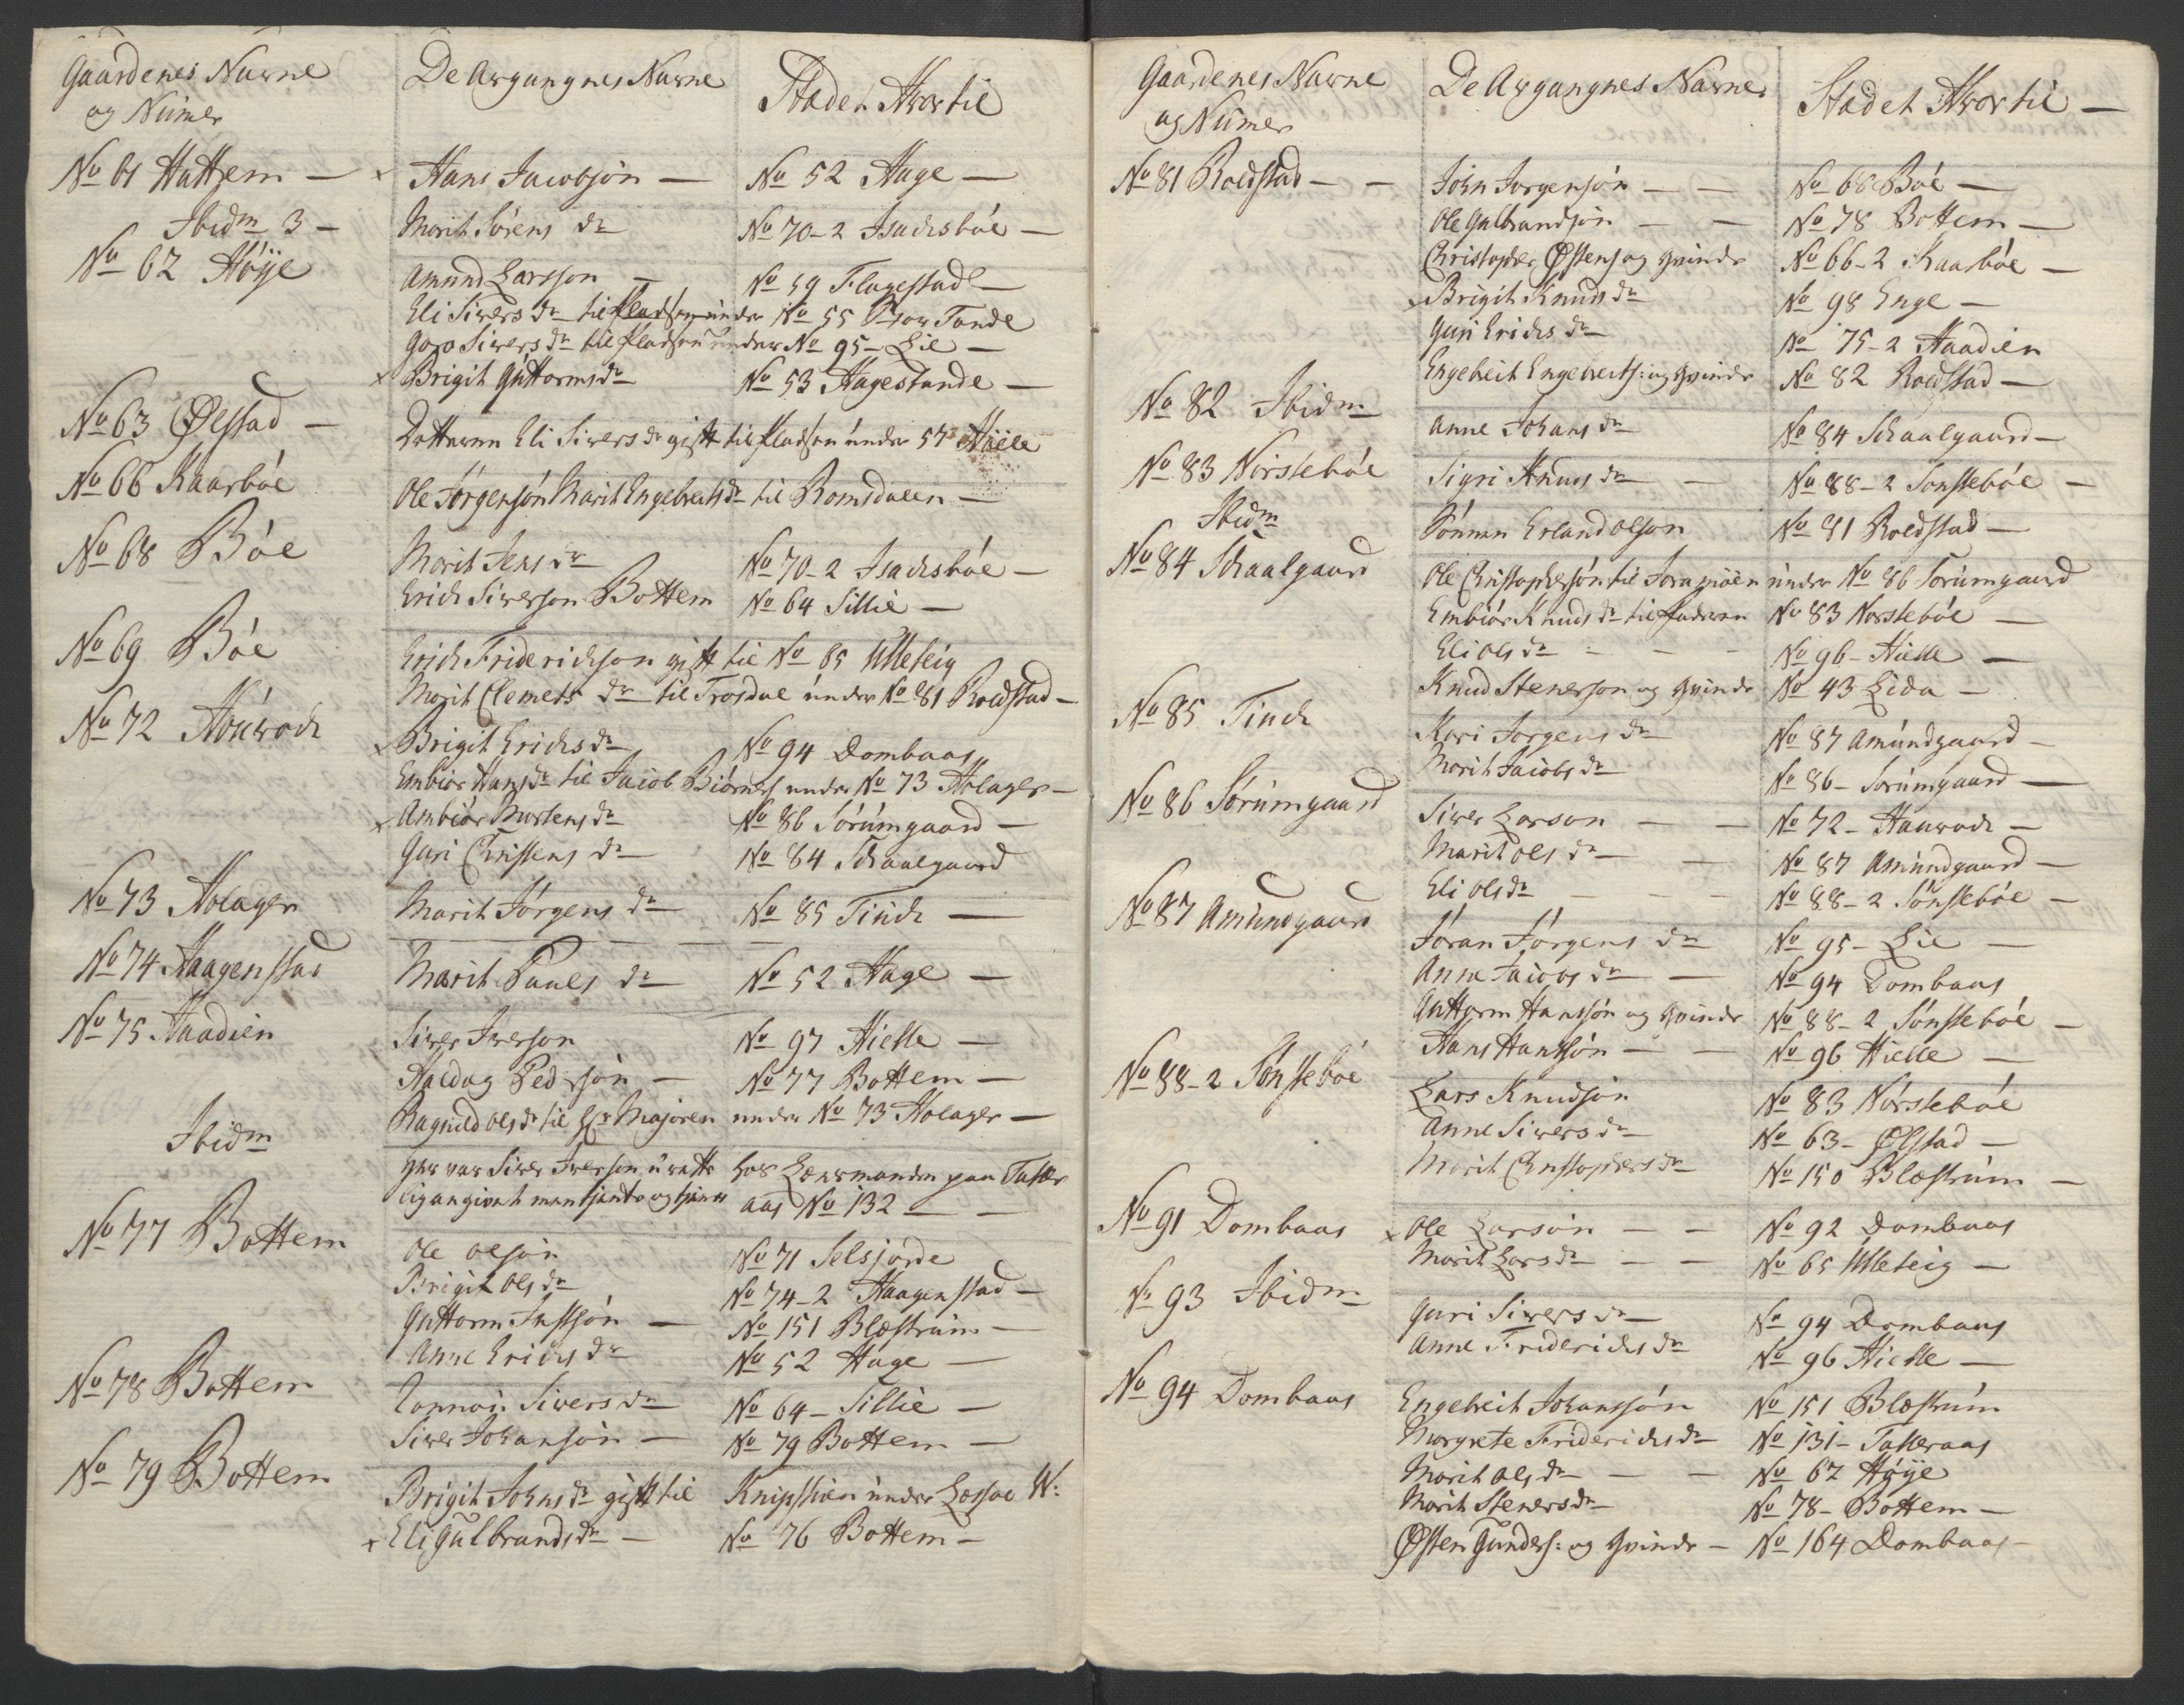 Gaardenes Navne De Avgangnes Navne Stadet Hvortil
og Numer
No 61 Hattrem — × Hans Jacobsøn — No 52 Hage —
Ibidm 3 — Marit Sørens dr No 70-2 Isachsbøe —
No 62 Høÿe Amund Larsson — No 59 Flagestad —
Eli Sivers dr til Pladsen under No 55 Tande
Goro Sivers dr til Pladsen under No 95 - Lie —
× Brigit Guttormsdr No 53 Hagestande —
No 63 Ølstad — Datteren Eli Sivers dr gift til Pladsen under 57 Hielle
No 66 Kaarbøe Ole Jørgensøn Marit Engebrects dr til Romsdalen —
No 68 Bøe Marit Jens dr No 70-2 Isachsbøe —
Erich Siverson Bottem No 64 Sillie —
No 69 Bøe Erich Friderichson gift til No 65 Ulleteig
Marit Clemets dr til Trosdal under No 81 Roldstad —
No 72 × Brigit Erichs dr No 94 Dombaas
Embiør Hans dr til Jacob Biørns under No 73 Holager —
× Ambiør Mortens dr No 86 Sørumgaard —
Guri Christens dr No 84 Schaalgaard
No 73 Holager Marit Jørgens dr No 85 Tinch —
No 74 Haagenstad Marit Pauls dr No 52 Hage —
No 75 Haadien Siver Iverson No 97 Hielle —
Haldag Pedersøn — No 77 Bottem —
Ragnild Ols dr til Hr Majoren under No 73 Holager —
Ibidm Her var Siver Iverson urætte hos Lænsmanden paa Tafler
lig angivet men tjente og tjener aas No 132 —
No 77 Bottem Ole Olsøn No 71 Selsjorde
Brigit Ols dr No 74-2 Haagenstad —
Guttorm Justsøn — No 151 Blæstrum —
Anne Erichs dr No 52 Hage —
No 78 Bottem Sivers dr No 64 - Sillie —
Siver Johansøn — No 79 Bottem —
No 79 Bottem Brigit Johns dr gift til Knipshien under Læssøe W:
× Eli Gulbrands dr — No 76 Bottem —
Gaardenes Navne De Avgangnes Navne Stadet Hvortil —
og Numer
No 81 Roldstad — — John Jorgensøn — — No 68 Bøe —
Ole Gulbrandsøn — — No 78 Bottem —
Christopher Østens og Qvinde No 66-2 Kaarbøe —
× Brigit Knuds dr No 98 Enge —
Guri Erichs dr No 75-2 Haadien
Engebreit Engebreits: og Qvinde No 82 Roldstad —
No 82 Ibidm Anne Johans dr No 84 Schaalgaard —
No 83 Norstebøe Sigri Knuds dr — No 88-2 Sønstebøe —
Ibidm Sønnen Erland Olson No 81 Roldstad —
No 84 Schaalgaard Ole Christophersøn til Joramoen under No 86 Sorumgaard
Embiør Knuds dr til Faderen No 83 Norstebøe —
Eli Ols dr — — — No 96 - Hielle —
Knud Stenerson og Qvinde No 43 Lida —
No 85 Tinch Kari Jorgens dr No 87 Amundgaard —
Marit Jacobs dr No 86 - Sorumgaard —
No 86 Sørumgaard Siver Larson — — No 72 -
Marit Ols dr — — No 87 Amundgaard —
No 87 Amundgaard Eli Ols dr — — — No 88-2 Sønstebøe —
Joran Jørgens dr No 95 - Lie —
Anne Jacobs dr — — No 94 Dombaas
Guttorm Hanssøn og Qvinde No 88-2 Sønstebøe —
No 88-2 Sønstebøe Hans Hanssøn — — No 96 Hielle —
Lars Knudsøn No 83 Nørstebøe
Anne Sivers dr No 63 - Ølstad —
Marit Christophers dr No 150 Blæstrum —
No 91 Dombaas × Ole Larsøn — — No 92 Dombaas
Marit Lars dr — — No 65 Ulleteig —
No 93 Ibidm Guri Sivers dr No 94 Dombaas
Anne Friderichs dr No 96 Hielle —
No 94 Dombaas Engebreit Johanssøn No 151 Blæstrum
Margrete Friderichs dr No 131 - Tafleraas
Marit Ols dr — — No 62 Høÿe
Marit Steners dr No 78 - Bottem —
Østen Gunders: og Qvinde — No 164 Dombaas —